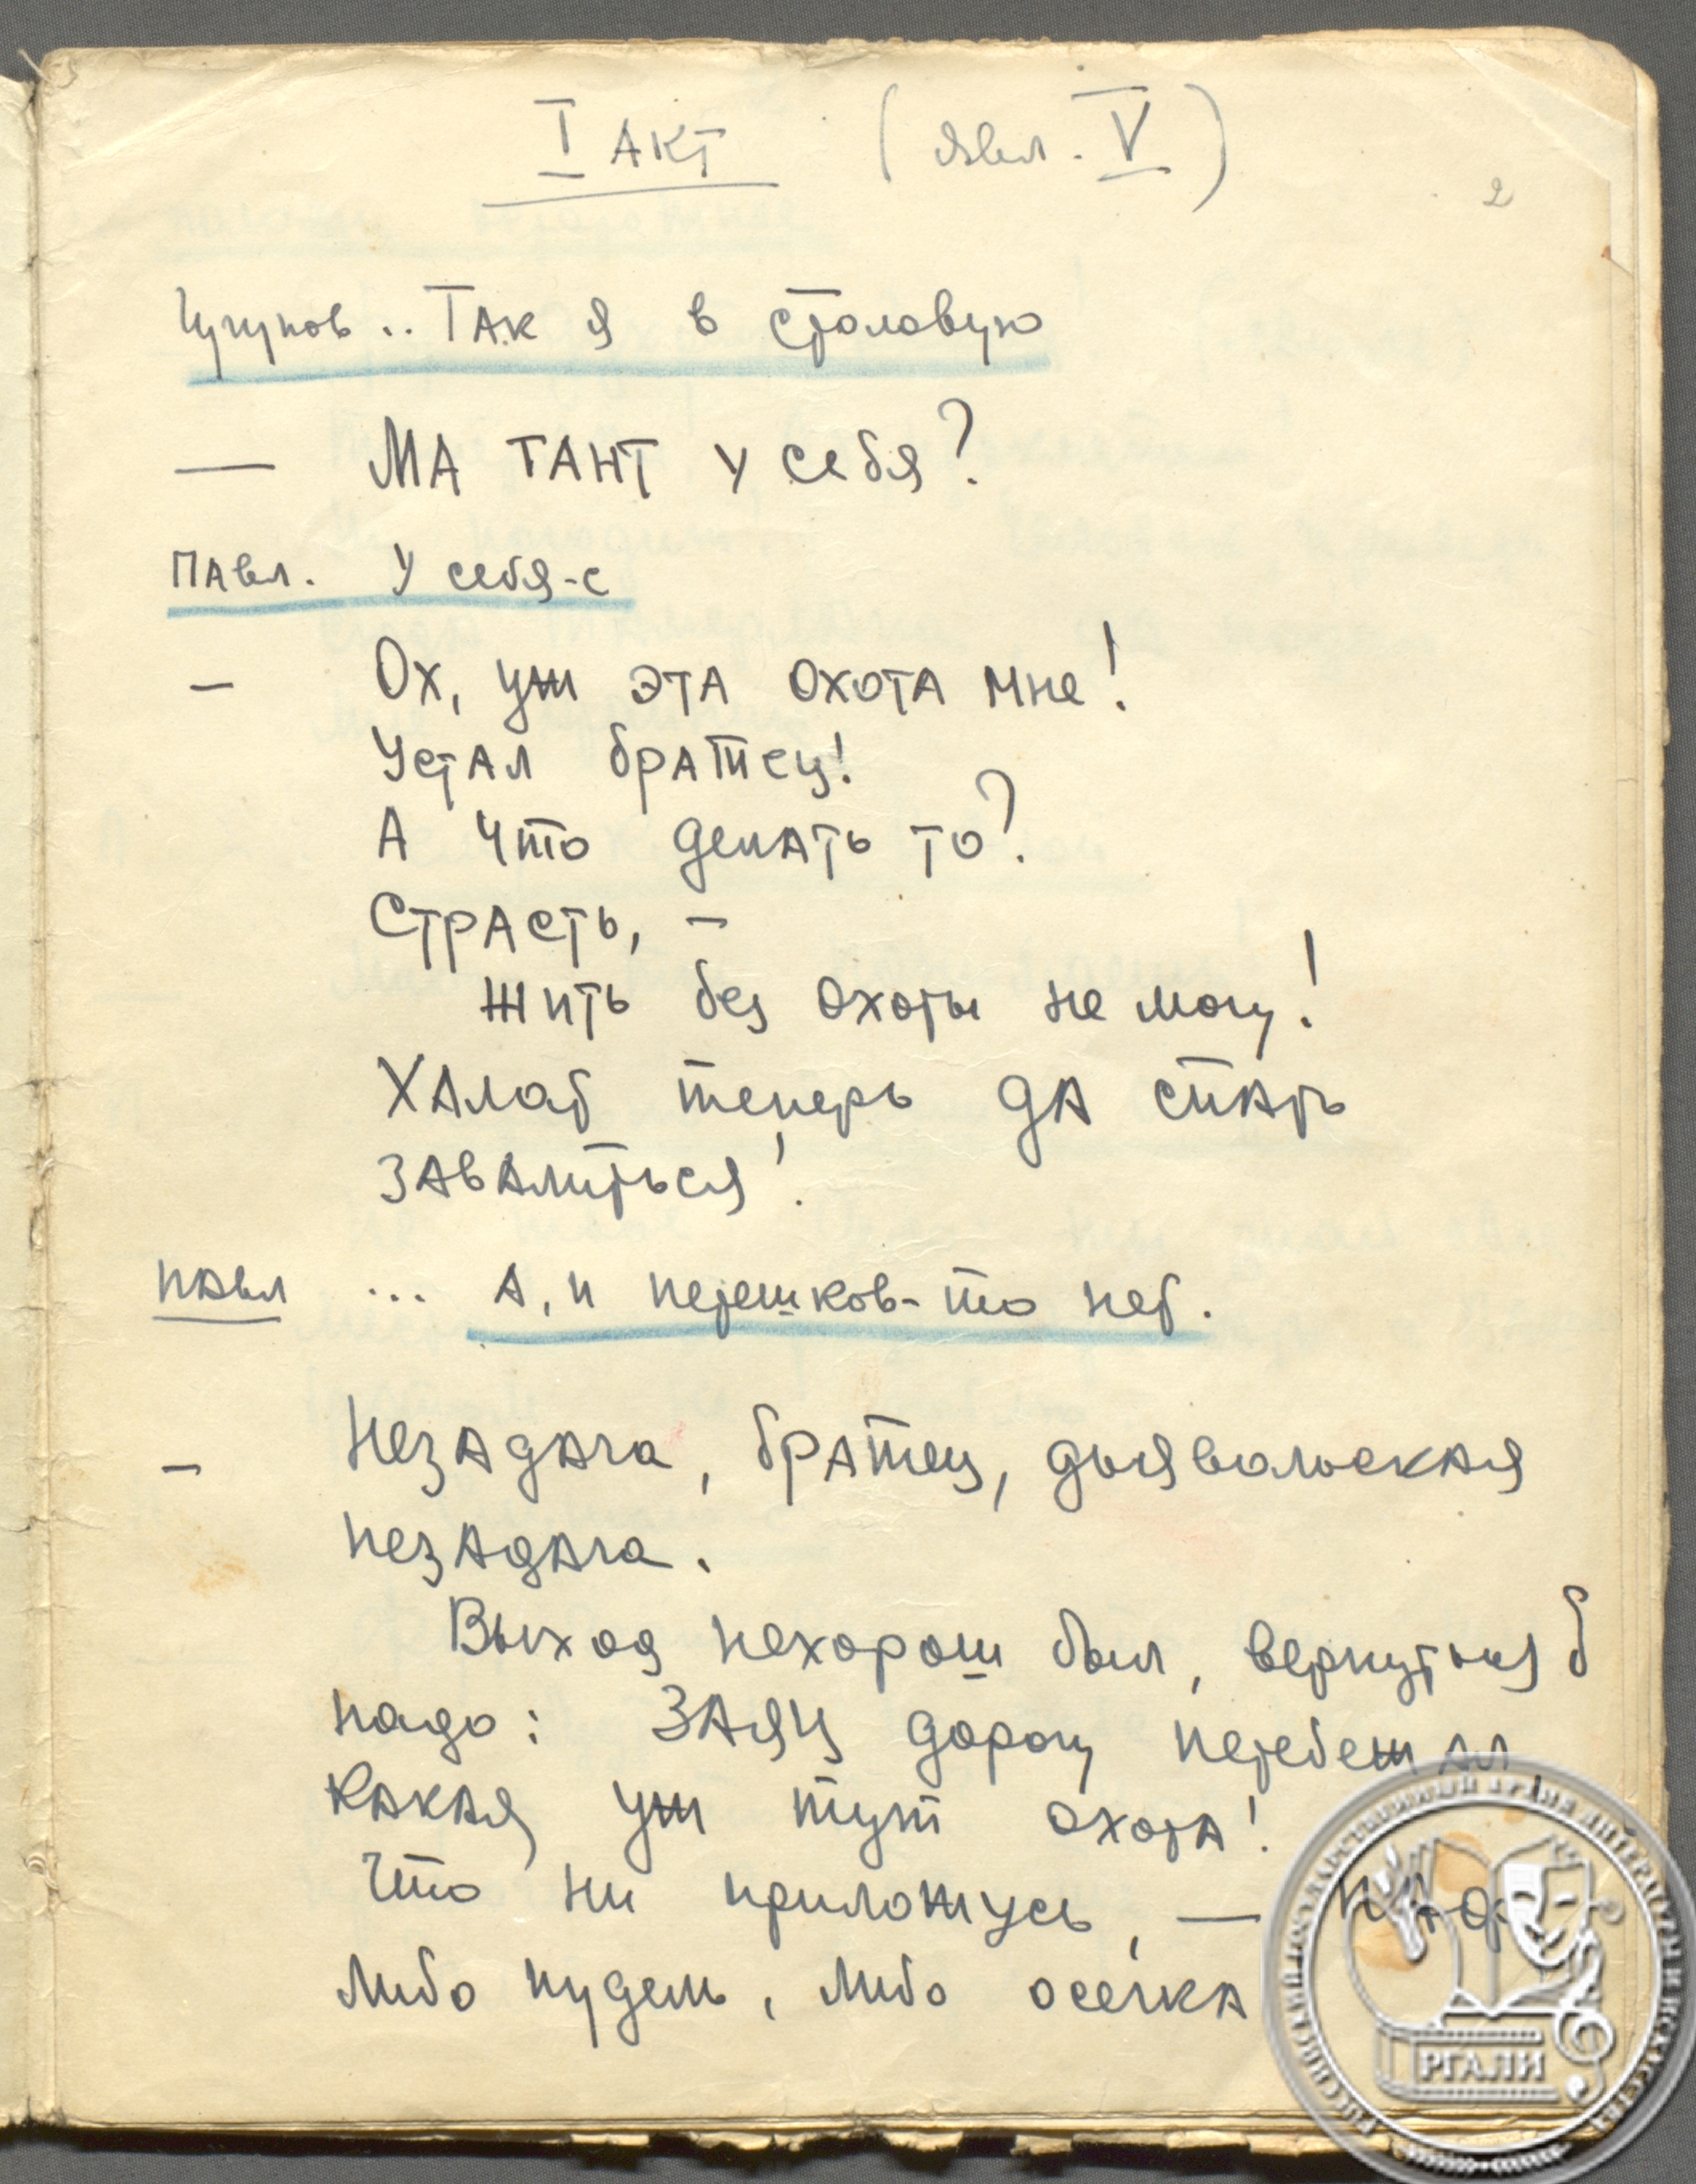 I акт (явл. V)
2
Чугунов .. Так я в столовую
— Ма тант у себя?
Павл. У себя-с
— Ох, уж эта охота мне!
Устал братец!
А что делать то?
Страсть, —
жить без охоты не могу!
Халат теперь да спать
завалиться!
Павл ... А, и перешков-то нет.
— Незадача, братец, дьявольская
незадача.
Выход нехорош был, вернуться б
надо: Заяц дорогу перебежал,
Какая уж тут охота!
Что ни приложусь, —
либо пудель, либо осечка
РОССИЙСКИЙ ГОСУДАРСТВЕННЫЙ АРХИВ ЛИТЕРАТУРЫ И ИСКУССТВА
РГАЛИ